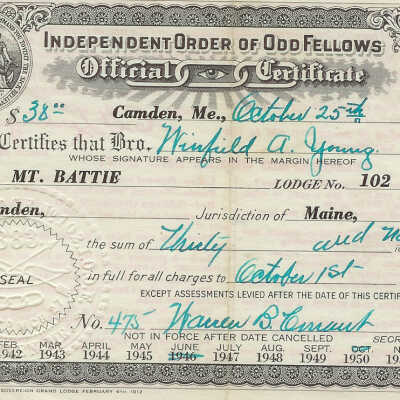 INDEPENDENT ORDER OF ODD FELLOWS
Official Certificate
$ 38.00 Camden, Me., October 25th
Certifies that Bro. Winfield A. Young
WHOSE SIGNATURE APPEARS IN THE MARGIN HEREOF
MT. BATTIE LODGE NO. 102
mden, Jurisdiction of Maine,
the sum of Thirty
SEAL in full for all charges to October 1st
EXCEPT ASSESSMENTS LEVIED AFTER THE DATE OF THIS CERTIF
No. 475 Warren B. Conant
NOT IN FORCE AFTER DATE CANCELLED SECRE
FEB MAR APRIL MAY JUNE JULY AUG. SEPT. OCT. N
1942 1943 1944 1945 1946 1947 1948 1949 1950 195
SOVEREIGN GRAND LODGE FEBRUARY 6TH, 1912